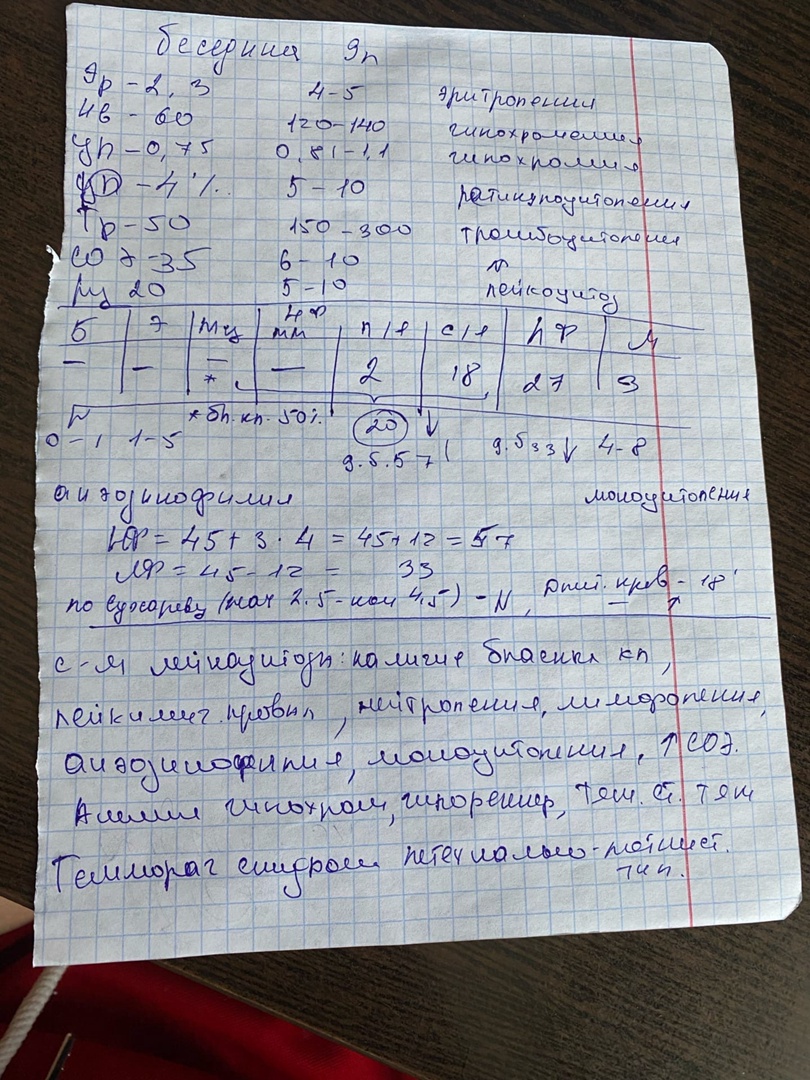 беседина 9л
Эр - 2,3 4-5 эритропения
Нв - 60 120-140 гипохромемия
ЦП - 0,75 0,81-1,1 гипохромия
- 4% 5-10 ретикулоцитопения
Тр - 50 150-300 тромбоцитопения
СОЭ - 35 6-10 ↑
Лц 20 5-10 лейкоцитоз
Б Э Мц мм п/я с/я ЛФ М
— — — * — 2 18 27 3
N * бл. кл. 50% 20 ↓
0-1 1-5 д.б. 57 д.б. 33 ↓ 4-8
анэозинофилия моноцитопения
НФ = 45 + 3 · 4 = 45+12 = 57
ЛФ = 45 - 12 = 33
по Сухареву (нач 2.5 - кон 4.5) - N, Длит. кров - 18' ↑
с-м лейкоцитоза: наличие бласных кл,
нейтропения, лимфопения,
анэозинофилия, моноцитопения, ↑ СОЭ.
Анемия гипохром, гипорегенер, тяж. ст. тяж
Геммораг синдром петехиально-пятнист.
тип.